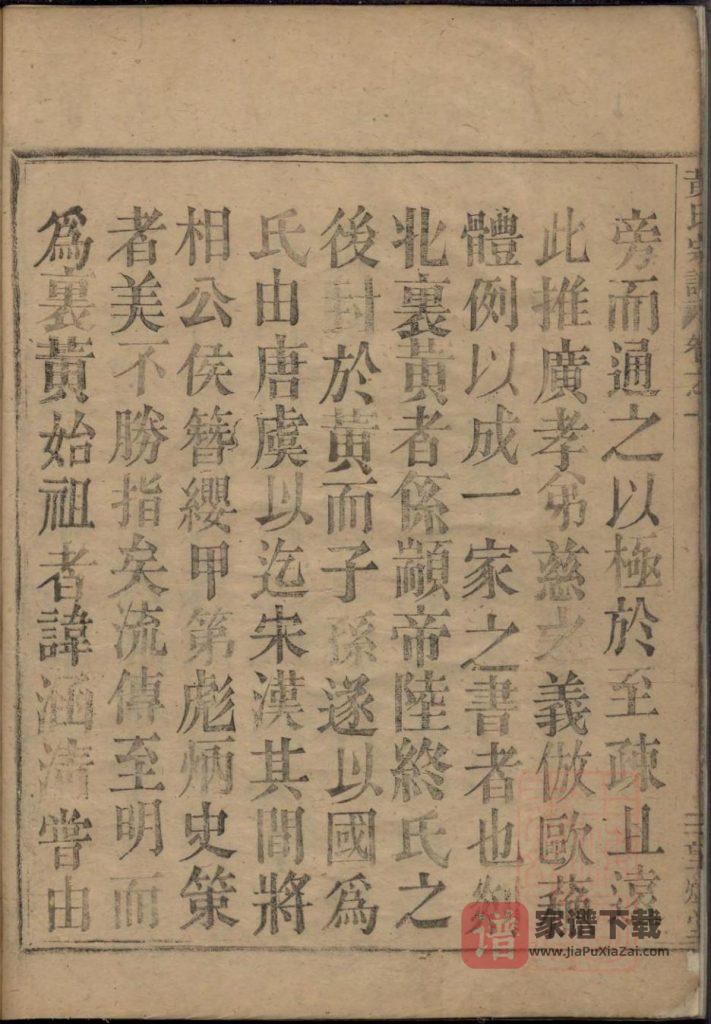 黃氏宗譜 卷之一
旁而通之以極於至疎且遠
此推廣孝弟慈之義倣歐蘇
體例以成一家之書者也
北裏黃者係顓帝陸終氏之
後封於黃而子孫遂以國爲
氏由唐虞以迄宋漢其間將
相公侯簪纓甲第彪炳史策
者美不勝指矣流傳至明而
爲裏黃始祖者諱涵清嘗由
譜
家谱下载
www.JiaPuXiaZai.com